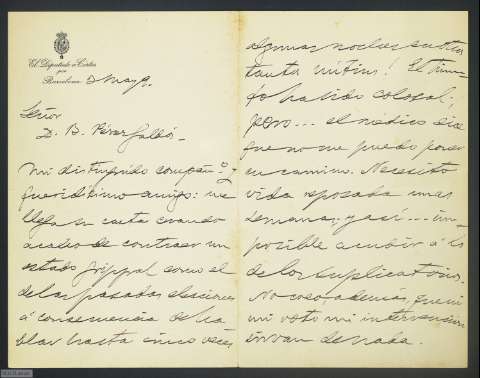 El Diputado á Cortes
por
Barcelona
Señor
D. B. Pérez Galdós.
Mi distinguido compañ.º y
queridísimo amigo: me
llega su carta cuando
acabo de contraer un
estado grippal como el
de las pasadas elecciones
á consecuencia de ha
blar hasta cinco veces
algunas noches en otros
tantos mítins! El triun
fo ha sido colosal;
pero... el médico dice
que no me puedo poner
en camino. Necesito
vida reposada unas
semanas, y así... im
posible acudir á lo
de los suplicatorios.
No creo, además, que ni
mi voto ni mi intervención
sirvan de nada.